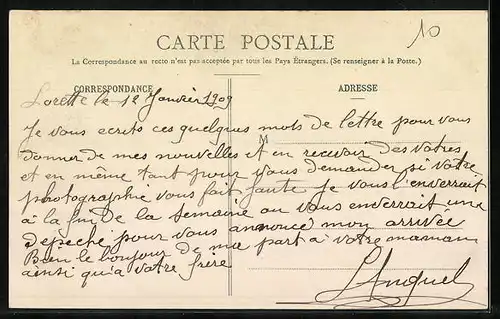 10
CARTE POSTALE
La Correspondance au recto n'est pas acceptée par tous les Pays Étrangers. (Se renseigner à la Poste.)
CORRESPONDANCE
ADRESSE
M
Lorette le 12 Janvier 1909
Je vous ecrits ces quelques mots de lettre pour vous
donner de mes nouvelles et en recevoir des votres
et en même tant pour vous demander si votre
photographie vous fait faute je vous l'enverrait
à la fin de la semaine ou vous enverrait une
dépeche pour vous annoncé mon arrivée
Bien le bonjour de ma part a votre maman
ainsi qu'a votre frère